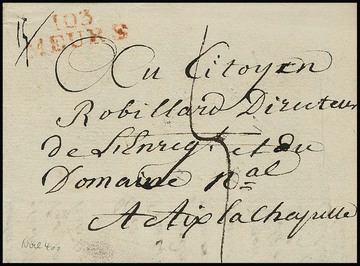 103
MEURS
Au Citoyen
Robillard Directeur
de L'Enreg.t et du
Domaine N.al
A Aix la Chapelle
5